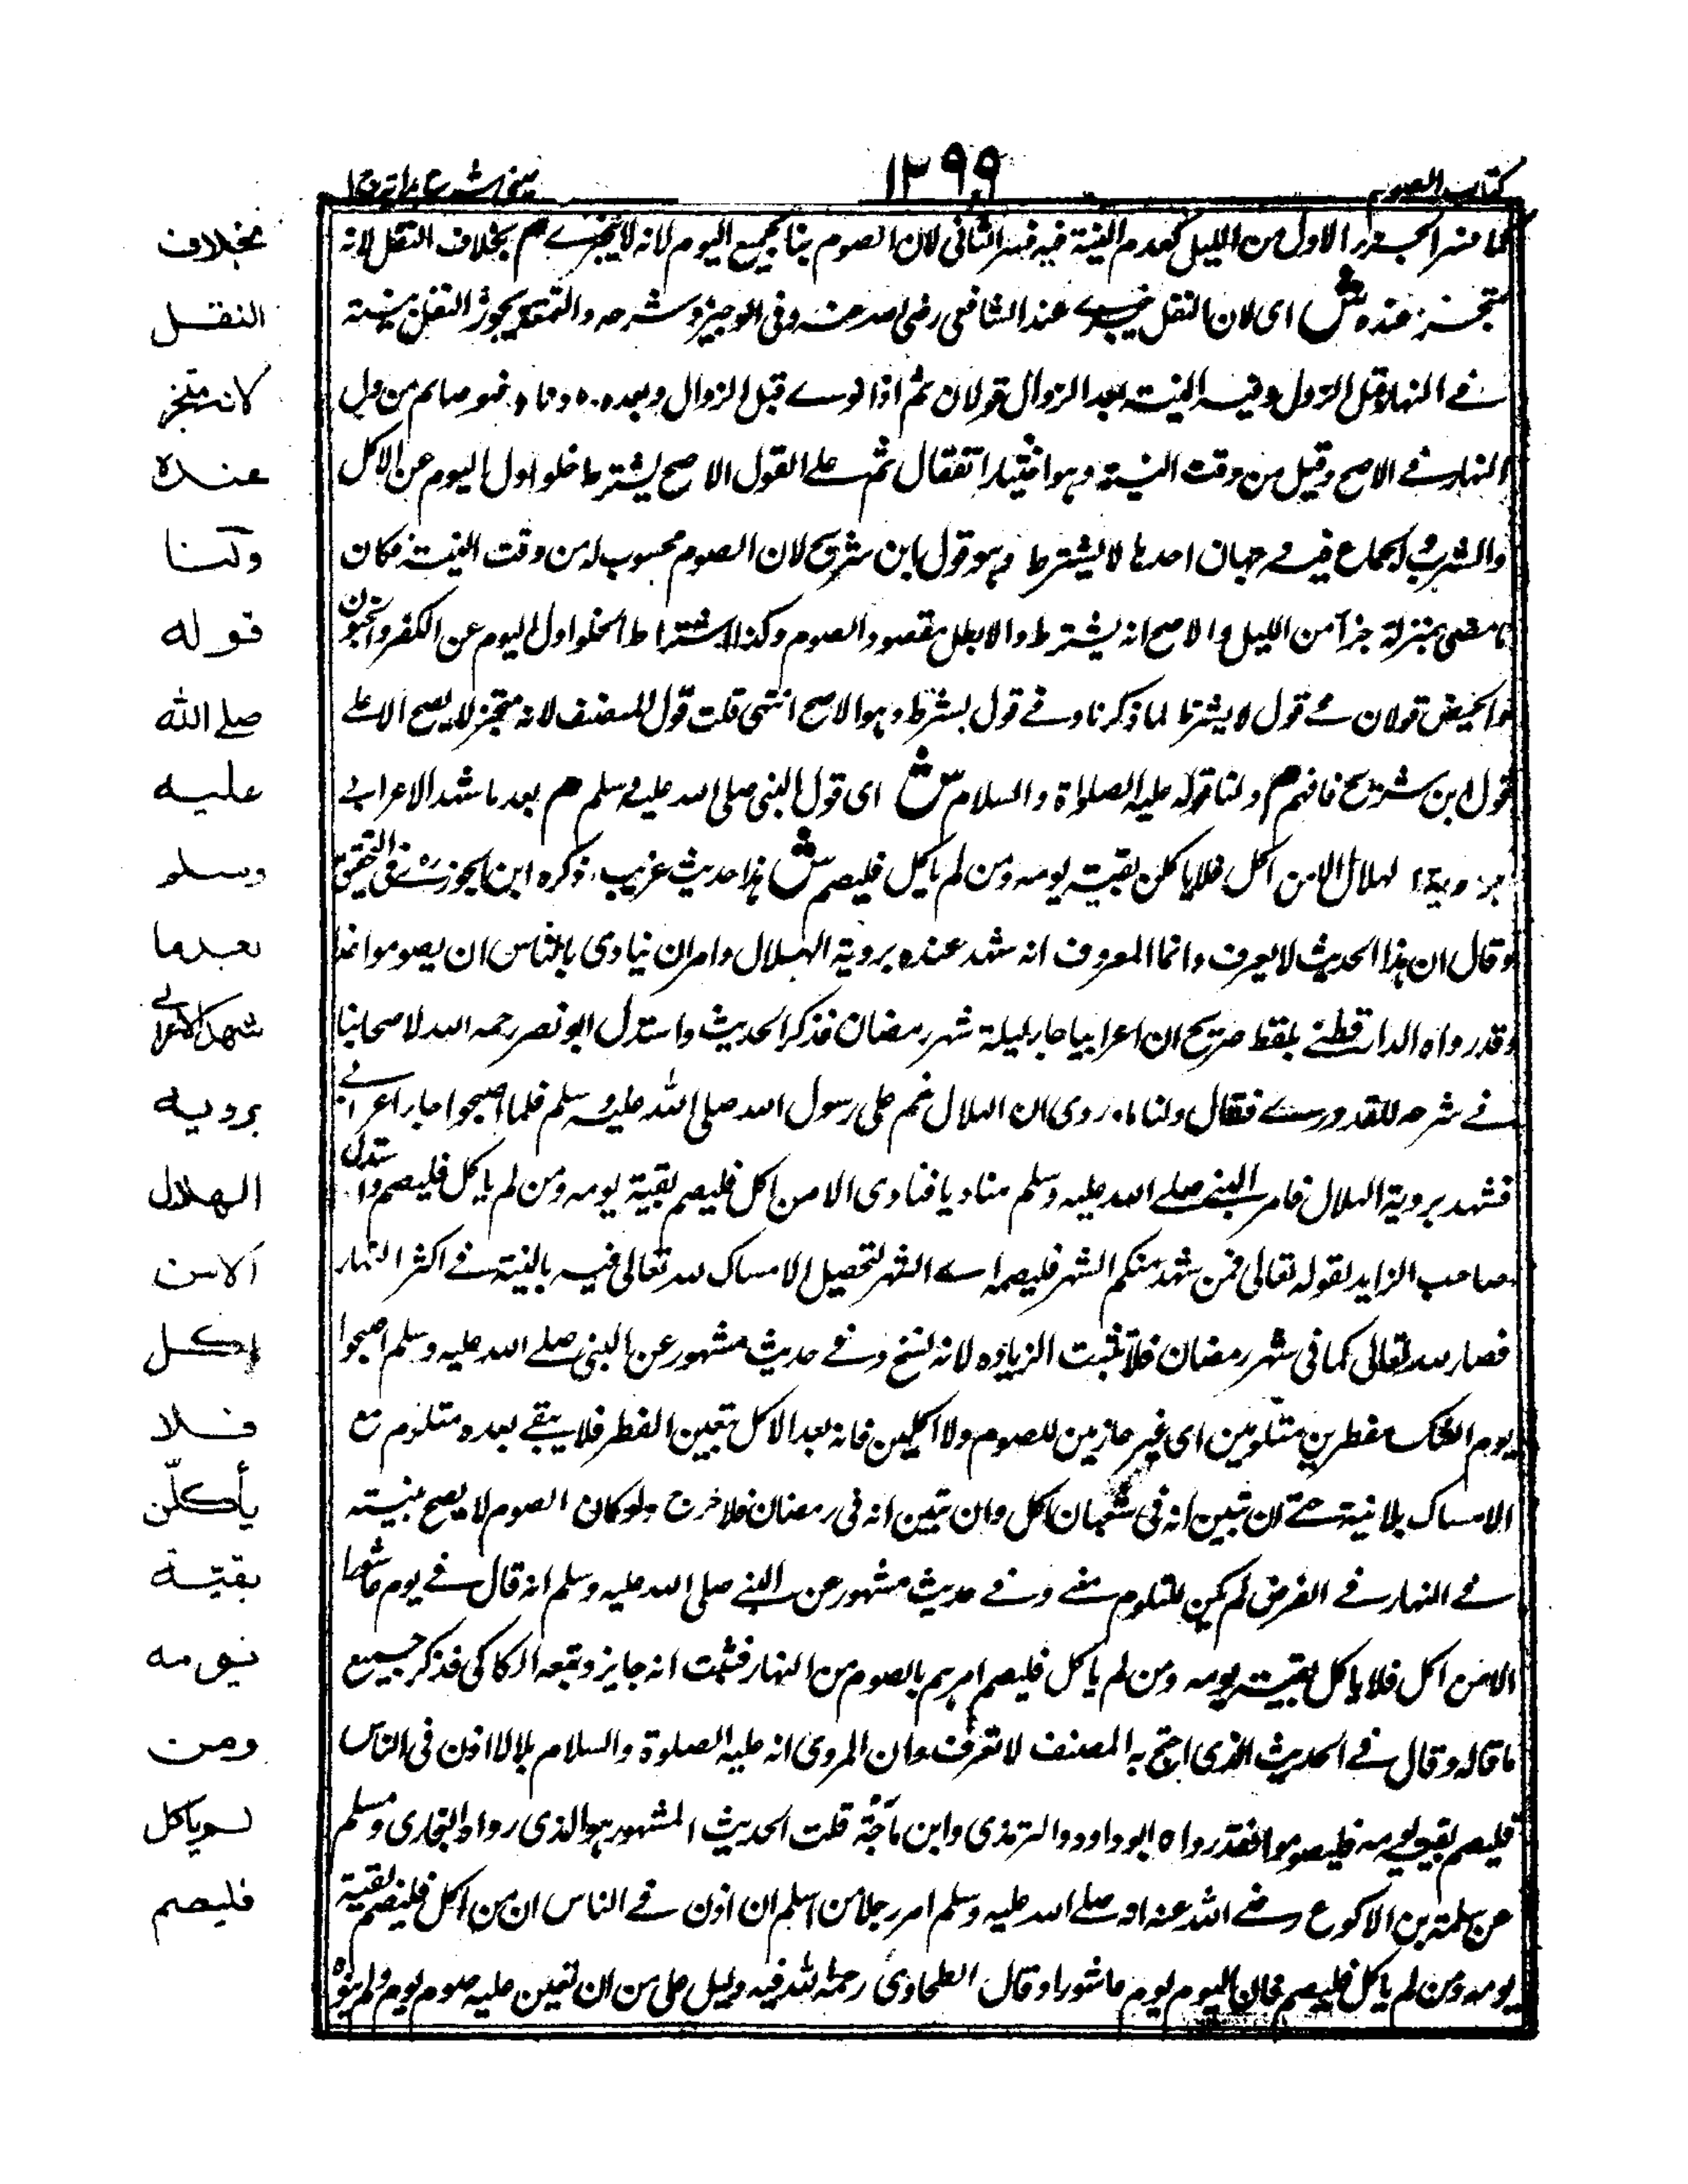 كتاب الصوم
١٣٩٩
عينى شرح هدايه ج ١
الجزء الاول من الليل لعدم النية فيه فسد الثانى لان الصوم بنا لجميع اليوم لانه لا يتجزے م بخلاف النفل لانه
متجز عنده ش اى لان النفل متجزے عند الشافعى رضى الله عنه وفى الوجيز وشرحه والتتمة يجوز النفل بنية
فے النهار قبل الزوال وفيه النية بعد الزوال قولان ثم اذا نوے قبل الزوال وبعده فهو صائم من اول
النهار فے الاصح وقيل من وقت النية وهو اختيار القفال ثم على القول الاصح يشترط خلو اول اليوم عن الاكل
والشرب والجماع فيه وجهان احدها لا يشترط وهو قول ابن شريح لان الصوم محسوب له من وقت النية فكان
ما مضى بمنزلة جزأ من الليل والاصح انه يشترط والا بطل مقصود الصوم وكذا اشتراط الخلو اول اليوم عن الكفر والجنون
والحيض قولان فے قول لا يشترط لما ذكرنا وفے قول يشترط وهو الاصح انتهى قلت قول المصنف لانه متجز لا يصح الا على
قول ابن شريح فافهم م ولنا قوله عليه الصلواة والسلام ش اى قول النبى صلى الله عليه وسلم م بعد ما شهد الاعرابے
برويۃ الهلال الا من اكل فلا ياكلن بقية يومه ومن لم ياكل فليصم ش هذا حديث غريب ذكره ابن الجوزے فى التحقيق
وقال ان هذا الحديث لا يعرف وانما المعروف انه شهد عنده بروية الهلال وامر ان ينادى بالناس ان يصوموا غدا
وقد رواه الدارقطنے بلفظ صريح ان اعرابيا جاء ليلة شهر رمضان فذكر الحديث واستدل ابو نصر رحمه الله لاصحابنا
فے شرحه للقدورے فقال ولنا ما روى ان الهلال غم على رسول الله صلى الله عليه وسلم فلما اصبحوا جاء اعرابے
فشهد بروية الهلال فامر النبے صلے الله عليه وسلم مناديا فنادى الا من اكل فليصم بقية يومه ومن لم ياكل فليصم واستدل
صاحب الزايد لقوله تعالى فمن شهد منكم الشهر فليصمه اے الشهر لتحصيل الامساك لله تعالى فيه بالنية فے اكثر النهار
فصار لله تعالى كما فى شهر رمضان فلا تثبت الزياده لانه نسخ وفے حديث مشهور عن النبى صلے الله عليه وسلم اصبحوا
يوم الشك مفطرين متلومين اى غير عازمين للصوم ولا اكلين فانه بعد الاكل تعين الفطر فلا يبقے بعده متلوم مع
الامساك بلا نية حتے ان تبين انه فى شعبان اكل وان تبين انه فى رمضان فلا حرج ولو كان الصوم لا يصح بنية
فے النهار فے الفرض لم يكن للتلوم معنے وفے حديث مشهور عن النبے صلى الله عليه وسلم انه قال فے يوم عاشورا
الا من اكل فلا ياكل بقية يومه ومن لم ياكل فليصم امرهم بالصوم من النهار فثبت انه جايز وتبعه الكاكى فذكر جميع
ما قاله وقال فے الحديث الذى احتج به المصنف لا تعرف وان المروى انه عليه الصلوة والسلام بلالا اذن فى الناس
فليصم بقية يومه فليصوموا فقد رواه ابو داود والترمذى وابن ماجة قلت الحديث المشهور هو الذى رواه البخارى ومسلم
عن سلمة بن الاكوع رضے الله عنه انه صلے الله عليه وسلم امر رجلا من اسلم ان اذن فے الناس ان من اكل فليصم بقية
يومه ومن لم ياكل فليصم فان اليوم يوم عاشورا وقال الطحاوى رحمه الله فيه دليل على من ان تعين عليه صوم يوم ولم ينوه
بخلاف
النفل
لانه متجز
عنده
ولنا
قوله
صلے الله
عليه
وسلم
بعد ما
شهد الاعرابے
برويه
الهلال
الا من
اكل
فلا
يأكلن
بقية
يومه
ومن
لم ياكل
فليصم